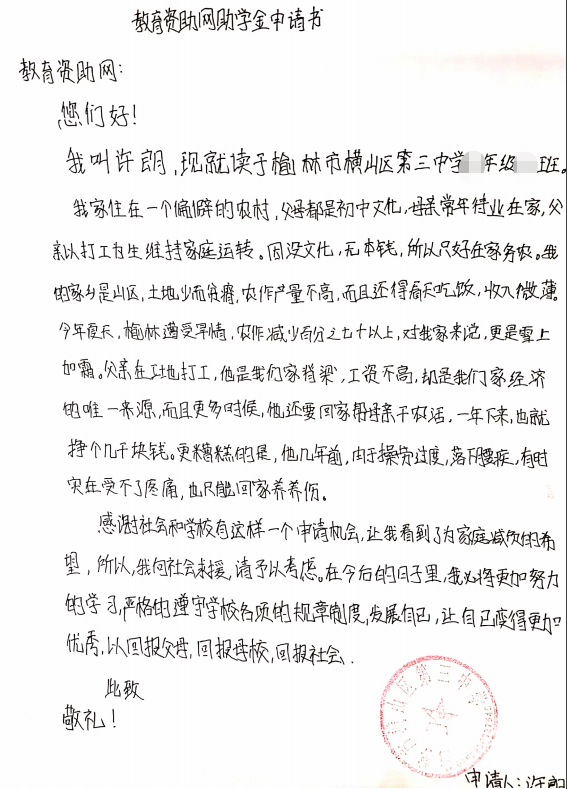 教育资助网助学金申请书
教育资助网:
您们好!
我叫许朗,现就读于榆林市横山区第三中学 年级 班。
我家住在一个偏僻的农村,父母都是初中文化,母亲常年待业在家,父
亲以打工为生维持家庭运转。因没文化,无本钱,所以只好在家务农。我
的家乡是山区,土地少而贫瘠,农作产量不高,而且还得看天吃饭,收入微薄。
今年夏天,榆林遭受旱情,农作减少百分之七十以上,对我家来说,更是雪上
加霜。父亲在工地打工,他是我们家脊梁,工资不高,却是我们家经济
的唯一来源,而且更多时候,他还要回家帮母亲干农活,一年下来,也就
挣个几千块钱。更糟糕的是,他几年前,由于操劳过度,落下腰疾,有时
实在受不了疼痛,也只能回家养养伤。
感谢社会和学校有这样一个申请机会,让我看到了为家庭减负的希
望,所以,我向社会求援,请予以考虑。在今后的日子里,我必将更加努力
的学习,严格的遵守学校各项的规章制度,发展自己,让自己变得更加
优秀,以回报父母,回报母校,回报社会.
此致
敬礼!
山区第三中学
申请人:许朗